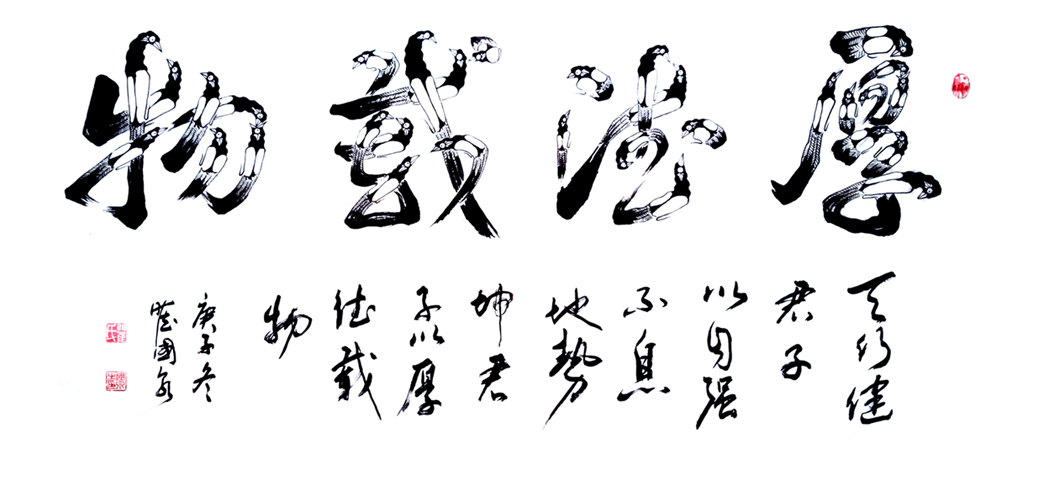 厚德载物
天行健
君子
以自强
不息
地势
坤君
子以厚
德载
物
庚子冬